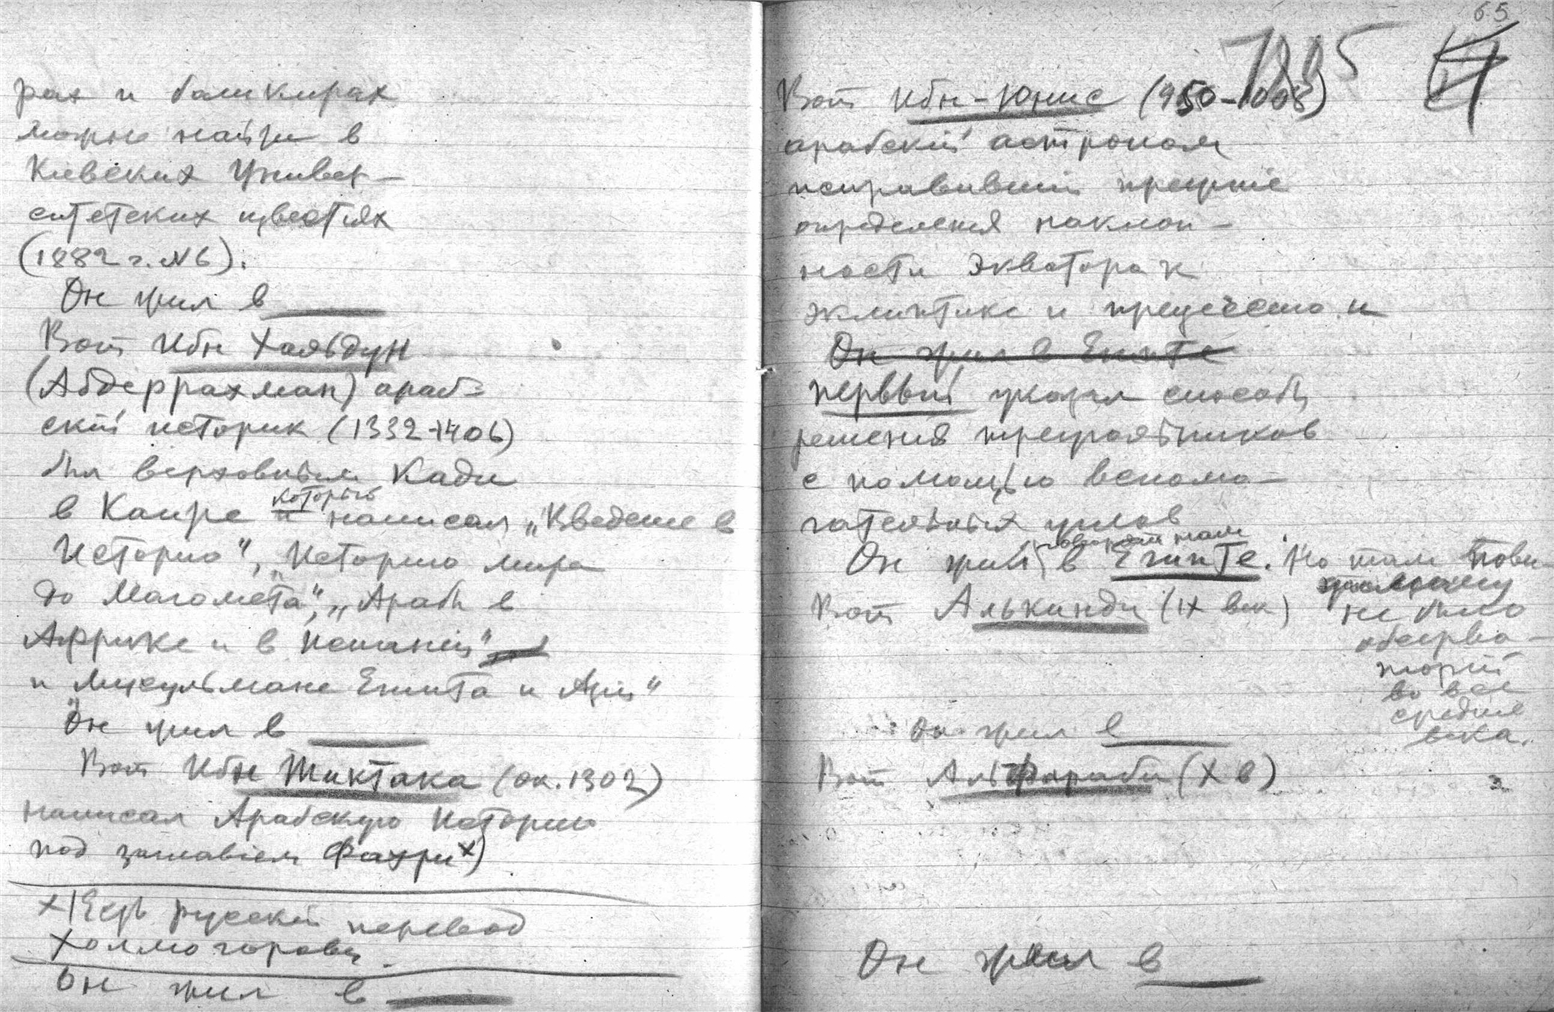 рах и башкирах
можно найти в
Киевских Универ-
ситетских известиях
(1882 г. №6).
Он жил в
Вот Ибн Хальдун
(Абдеррахман) араб-
ский историк (1332-1406)
был верховным Кади
в Каире который написал „Введение в
Историю", „Историю мира
до Магомета", „Арабы в
Африке и в Испании"
и „Мусульмане Египта и Азии"
Он жил в
Вот Ибн Тиктака (ок. 1302)
написал Арабскую Историю
под заглавием Фахри х)
х) Есть русский перевод
Холмогорова.
Он жил в
65
7885
Вот Ибн-Юнис (950-1008)
арабский астроном
исправивший прежние
определения наклон-
ности экватора к
эклиптике и прецессию и
Он жил в Египте
первый указал способы
решения треугольников
с помощью вспомо-
гательных углов
Он жил, говорят нам в Египте. Но там
не было
обсерва-
торий
во все
средние
века.
Вот Алькинди (IX век)
Он жил в
Вот Альфараби (X в)
Он жил в